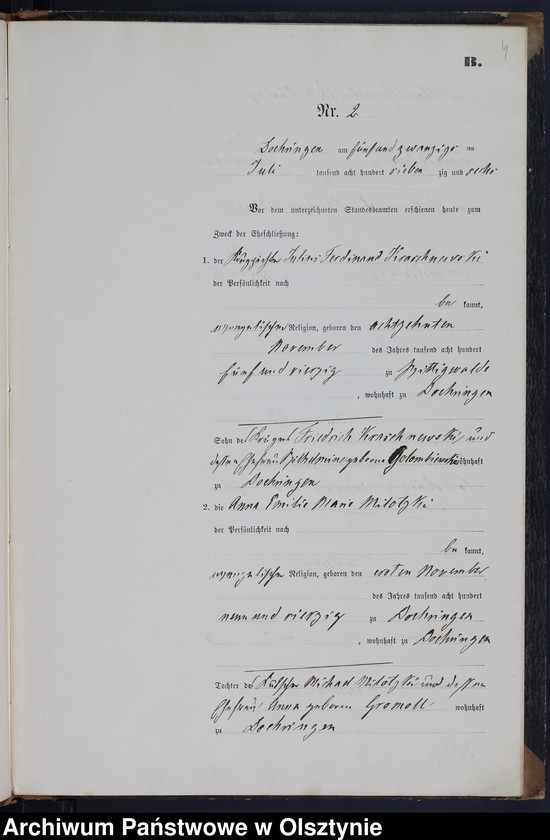 4
B.
Nr. 2
Doehringen am fünfundzwanzigs ten
Juli tausend acht hundert sieben zig und sechs
Vor dem unterzeichneten Standesbeamten erschienen heute zum
Zweck der Eheschließung:
1. der Julius Ferdinand Kraschnewski
der Persönlichkeit nach
be kannt,
evangelischer Religion, geboren den achtzehnten
November des Jahres tausend acht hundert
fünf und vierzig zu Wittigwalde
, wohnhaft zu Doehringen
Sohn des Friedrich Kraschnewski und
dessen Ehefrau Wilhelmine geborne Golombiewski wohnhaft
zu Doehringen
2. die Anna Emilie Marie Milotzki
der Persönlichkeit nach
be kannt,
evangelischer Religion, geboren den ersten November
des Jahres tausend acht hundert
neun und vierzig zu Doehringen
, wohnhaft zu Doehringen
Tochter des Michael Milotzki und dessen
Ehefrau Anna geborne Gromoll wohnhaft
zu Doehringen
Archiwum Państwowe w Olsztynie